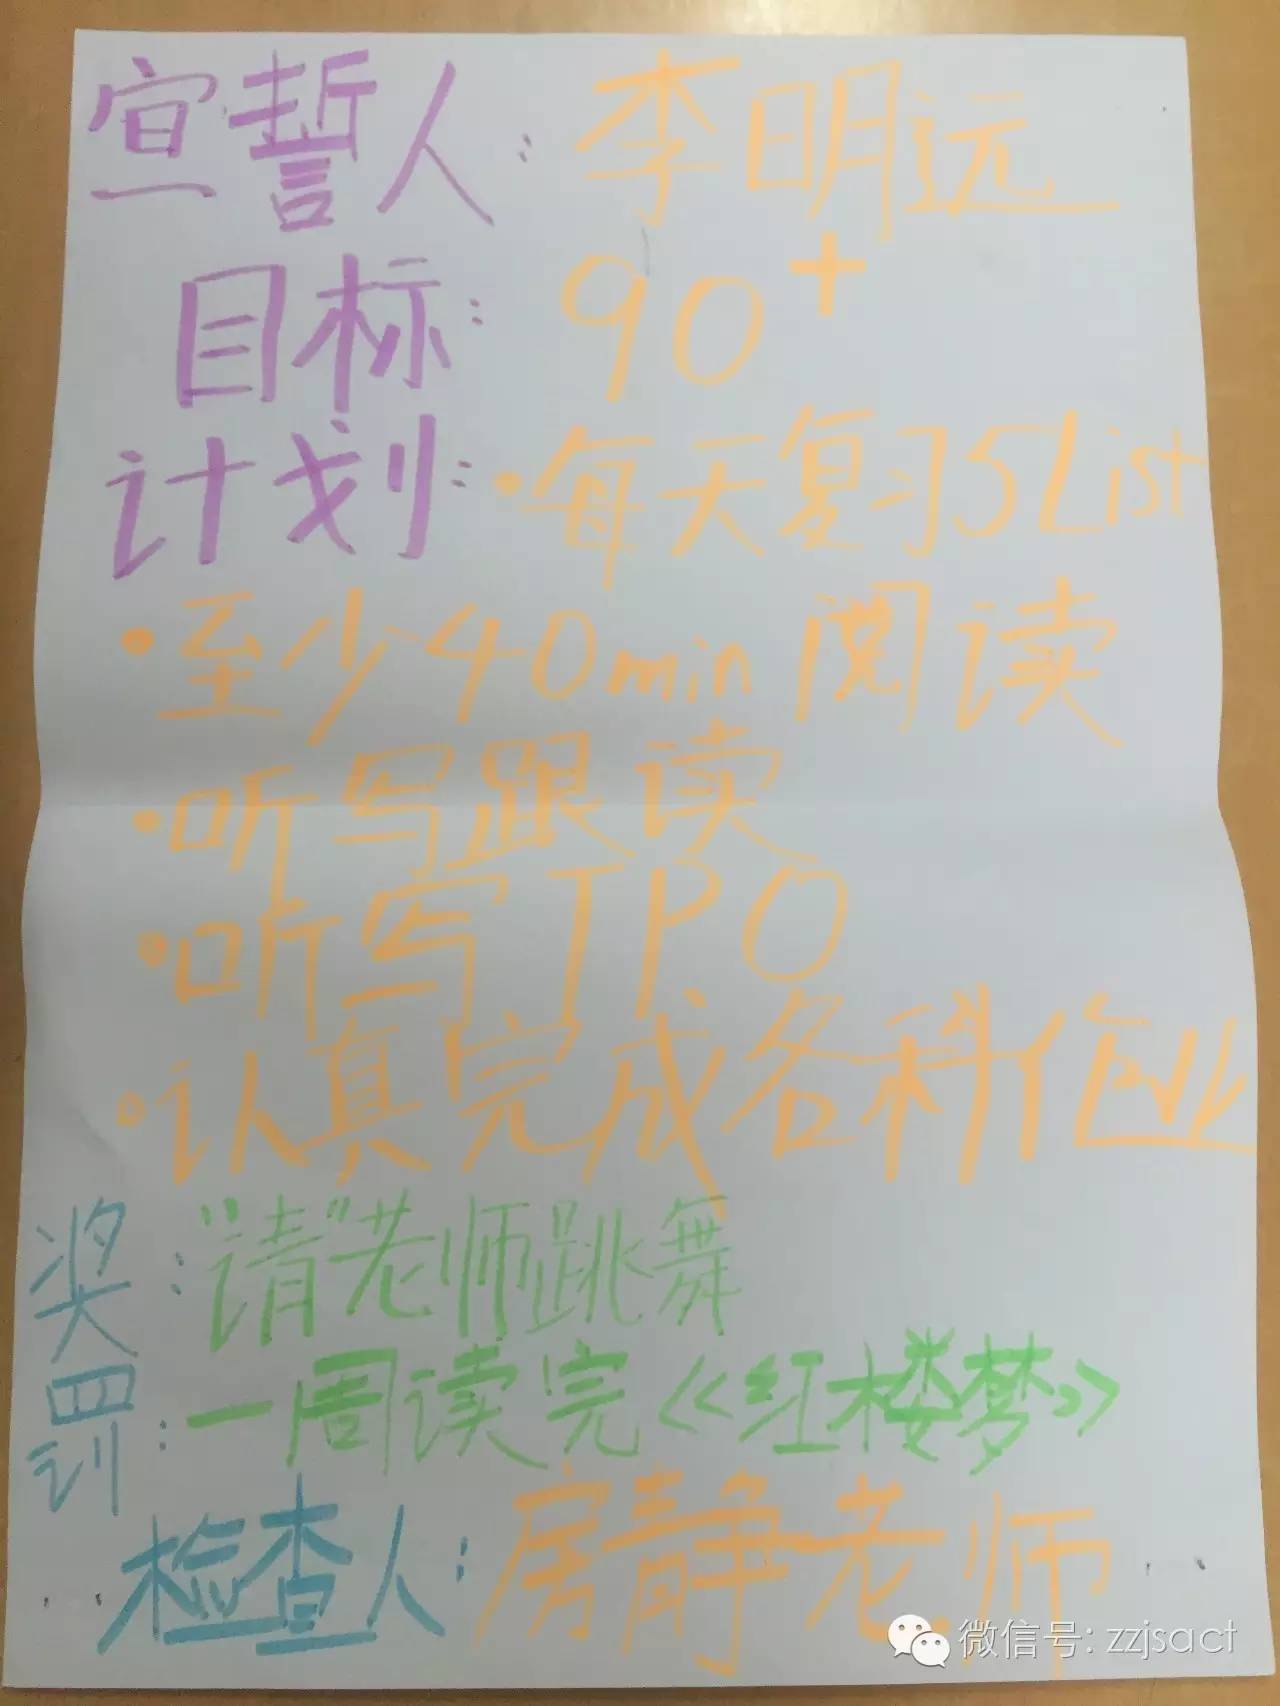 宣誓人：李明远
目标：90+
计划：·每天复习5List
·至少40min阅读
·听写跟读
·听写TPO
·认真完成各科作业
奖：“请”老师跳舞
罚：一周读完《红楼梦》
检查人：房静老师
微信号: zzjsact